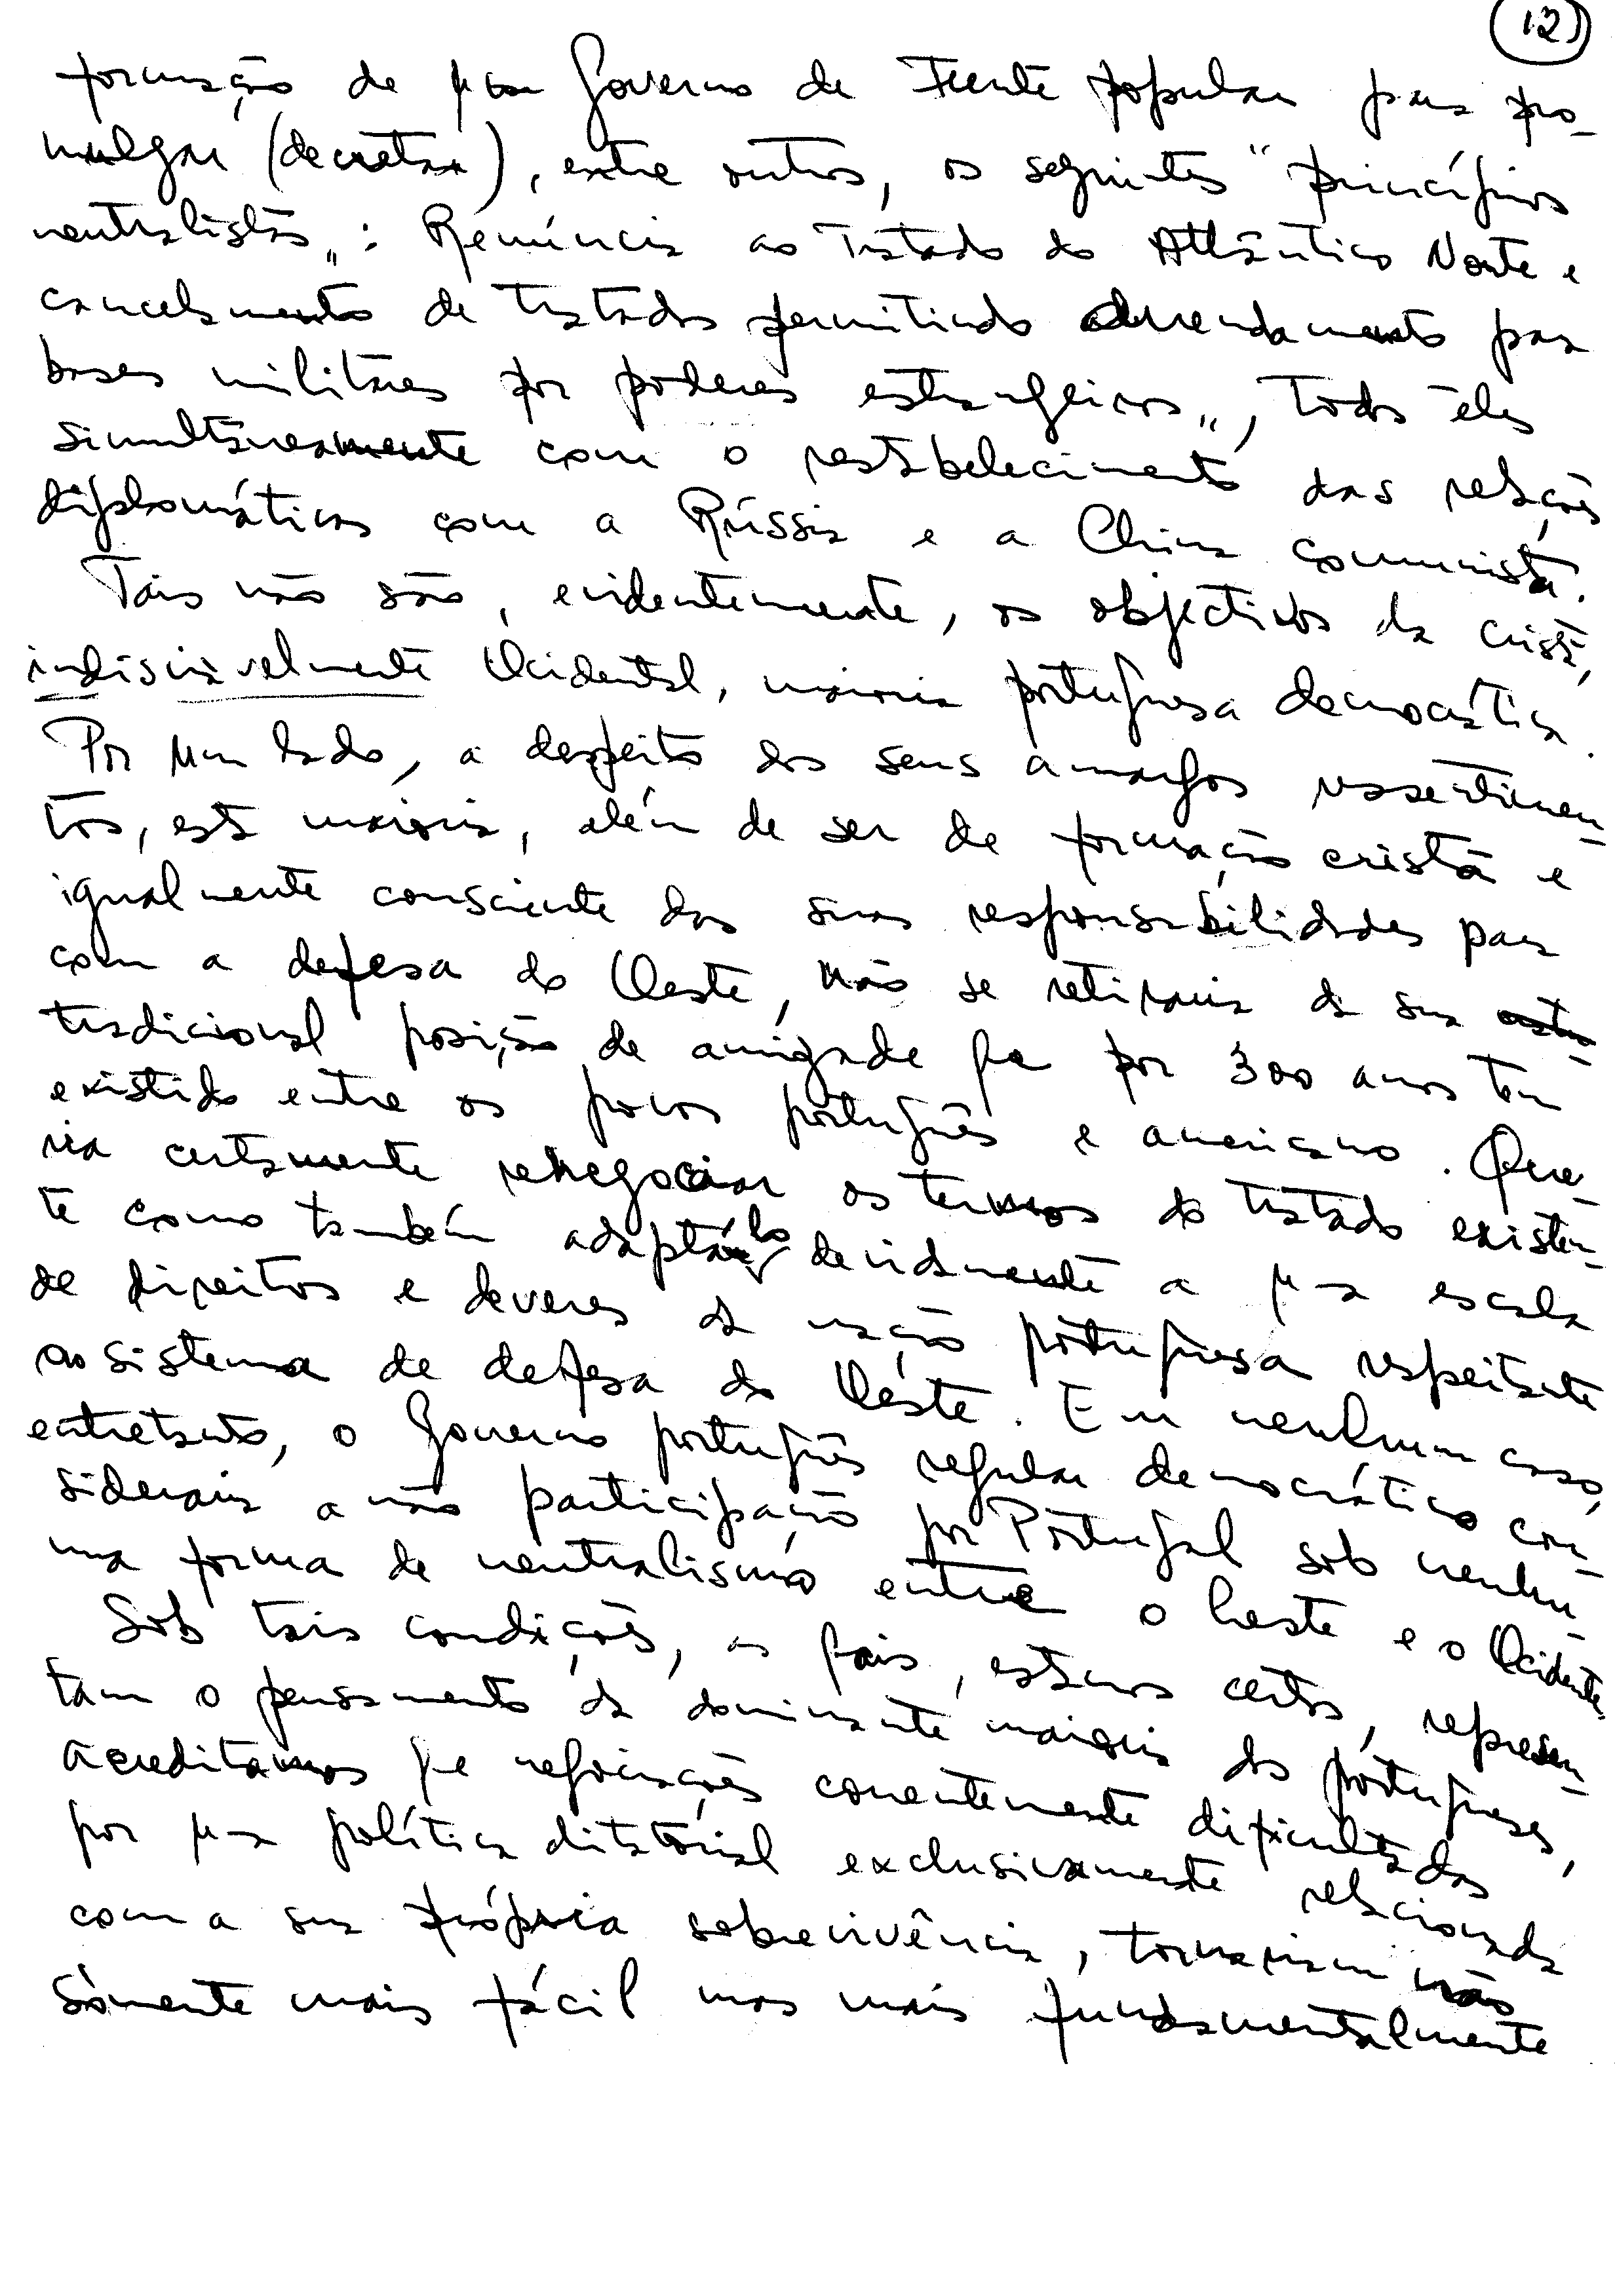 12)
formação de um Governo de Frente popular para pro-
mulgar (decretar), entre outros, os seguintes "princípios
neutralistas": Renúncia ao Tratado do Atlântico Norte e
cancelamento de tratados permitindo arrendamento para
bases militares por poderes estrangeiros", todos êles
simultâneamente com o restabelecimento das relações
diplomáticas com a Rússia e a China comunista.
Tais não são, evidentemente, os objectivos da cristã,
indisivelmente Ocidental, maioria portuguesa democrática.
Por um lado, a despeito dos seus amargos ressentimen-
tos, esta maioria, além de ser de formação cristã e
igualmente consciente das suas responsabilidades para
com a defesa do Oeste, não se retiraria da sua
tradicional posição de amizade que por 300 anos tem
existido entre os povos português e americano. Que-
ria certamente renegociar os termos do tratado existen-
te como também adaptá-lo devidamente a uma escala
de direitos e deveres da nação portuguesa respeitante
ao sistema de defesa do Oeste. Em nenhum caso,
entretanto, o Governo português regular democrático con-
sideraria a não participação por Portugal sob nenhu-
ma forma de neutralismo entre o Leste e o Ocidente.
Sob tais condições, as quais, estamos certos, represen-
tam o pensamento da dominante maioria dos portugueses,
acreditamos que negociações correntemente dificultadas
por uma política ditatorial exclusivamente relacionada
com a sua própria sobrevivência, tornariam não
sòmente mais fácil mas mais fundamentalmente